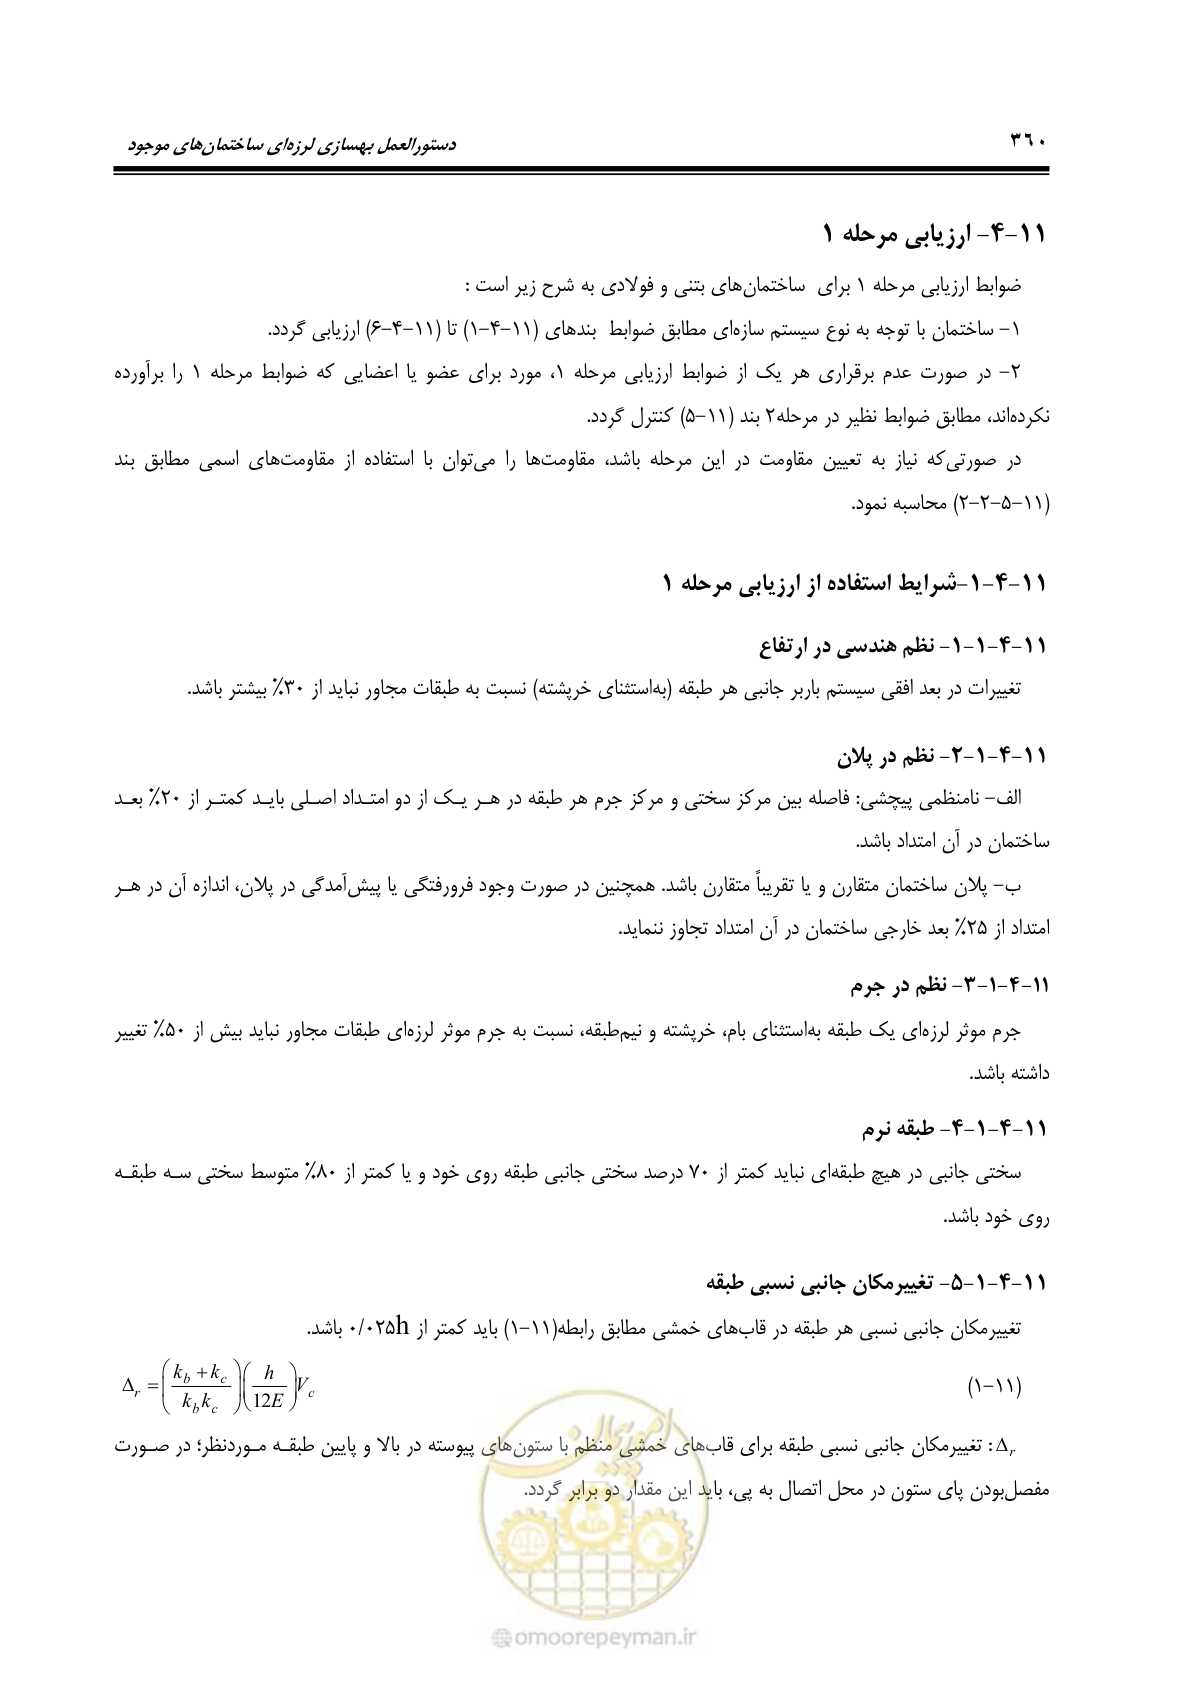 ۳۶۰
دستورالعمل بهسازی لرزه‌ای ساختمان‌های موجود
۱۱-۴- ارزیابی مرحله ۱
ضوابط ارزیابی مرحله ۱ برای ساختمان‌های بتنی و فولادی به شرح زیر است :
۱- ساختمان با توجه به نوع سیستم سازه‌ای مطابق ضوابط بندهای (۱۱-۴-۱) تا (۱۱-۴-۶) ارزیابی گردد.
۲- در صورت عدم برقراری هر یک از ضوابط ارزیابی مرحله ۱، مورد برای عضو یا اعضایی که ضوابط مرحله ۱ را برآورده
نکرده‌اند، مطابق ضوابط نظیر در مرحله۲ بند (۱۱-۵) کنترل گردد.
در صورتی‌که نیاز به تعیین مقاومت در این مرحله باشد، مقاومت‌ها را می‌توان با استفاده از مقاومت‌های اسمی مطابق بند
(۱۱-۵-۲-۲) محاسبه نمود.
۱۱-۴-۱-شرایط استفاده از ارزیابی مرحله ۱
۱۱-۴-۱-۱- نظم هندسی در ارتفاع
تغییرات در بعد افقی سیستم باربر جانبی هر طبقه (به‌استثنای خرپشته) نسبت به طبقات مجاور نباید از ۳۰٪ بیشتر باشد.
۱۱-۴-۱-۲- نظم در پلان
الف- نامنظمی پیچشی: فاصله بین مرکز سختی و مرکز جرم هر طبقه در هـر یـک از دو امتـداد اصـلی بایـد کمتـر از ۲۰٪ بعـد
ساختمان در آن امتداد باشد.
ب- پلان ساختمان متقارن و یا تقریباً متقارن باشد. همچنین در صورت وجود فرورفتگی یا پیش‌آمدگی در پلان، اندازه آن در هـر
امتداد از ۲۵٪ بعد خارجی ساختمان در آن امتداد تجاوز ننماید.
۱۱-۴-۱-۳- نظم در جرم
جرم موثر لرزه‌ای یک طبقه به‌استثنای بام، خرپشته و نیم‌طبقه، نسبت به جرم موثر لرزه‌ای طبقات مجاور نباید بیش از ۵۰٪ تغییر
داشته باشد.
۱۱-۴-۱-۴- طبقه نرم
سختی جانبی در هیچ طبقه‌ای نباید کمتر از ۷۰ درصد سختی جانبی طبقه روی خود و یا کمتر از ۸۰٪ متوسط سختی سـه طبقـه
روی خود باشد.
۱۱-۴-۱-۵- تغییرمکان جانبی نسبی طبقه
تغییرمکان جانبی نسبی هر طبقه در قاب‌های خمشی مطابق رابطه(۱۱-۱) باید کمتر از ۰/۰۲۵h باشد.
(۱۱-۱) Δr = ((kb + kc) / (kb kc)) (h / 12E) Vc
Δr : تغییرمکان جانبی نسبی طبقه برای قاب‌های خمشی منظم با ستون‌های پیوسته در بالا و پایین طبقـه مـوردنظر؛ در صـورت
مفصل‌بودن پای ستون در محل اتصال به پی، باید این مقدار دو برابر گردد.
امور پیمان
omoorepeyman.ir